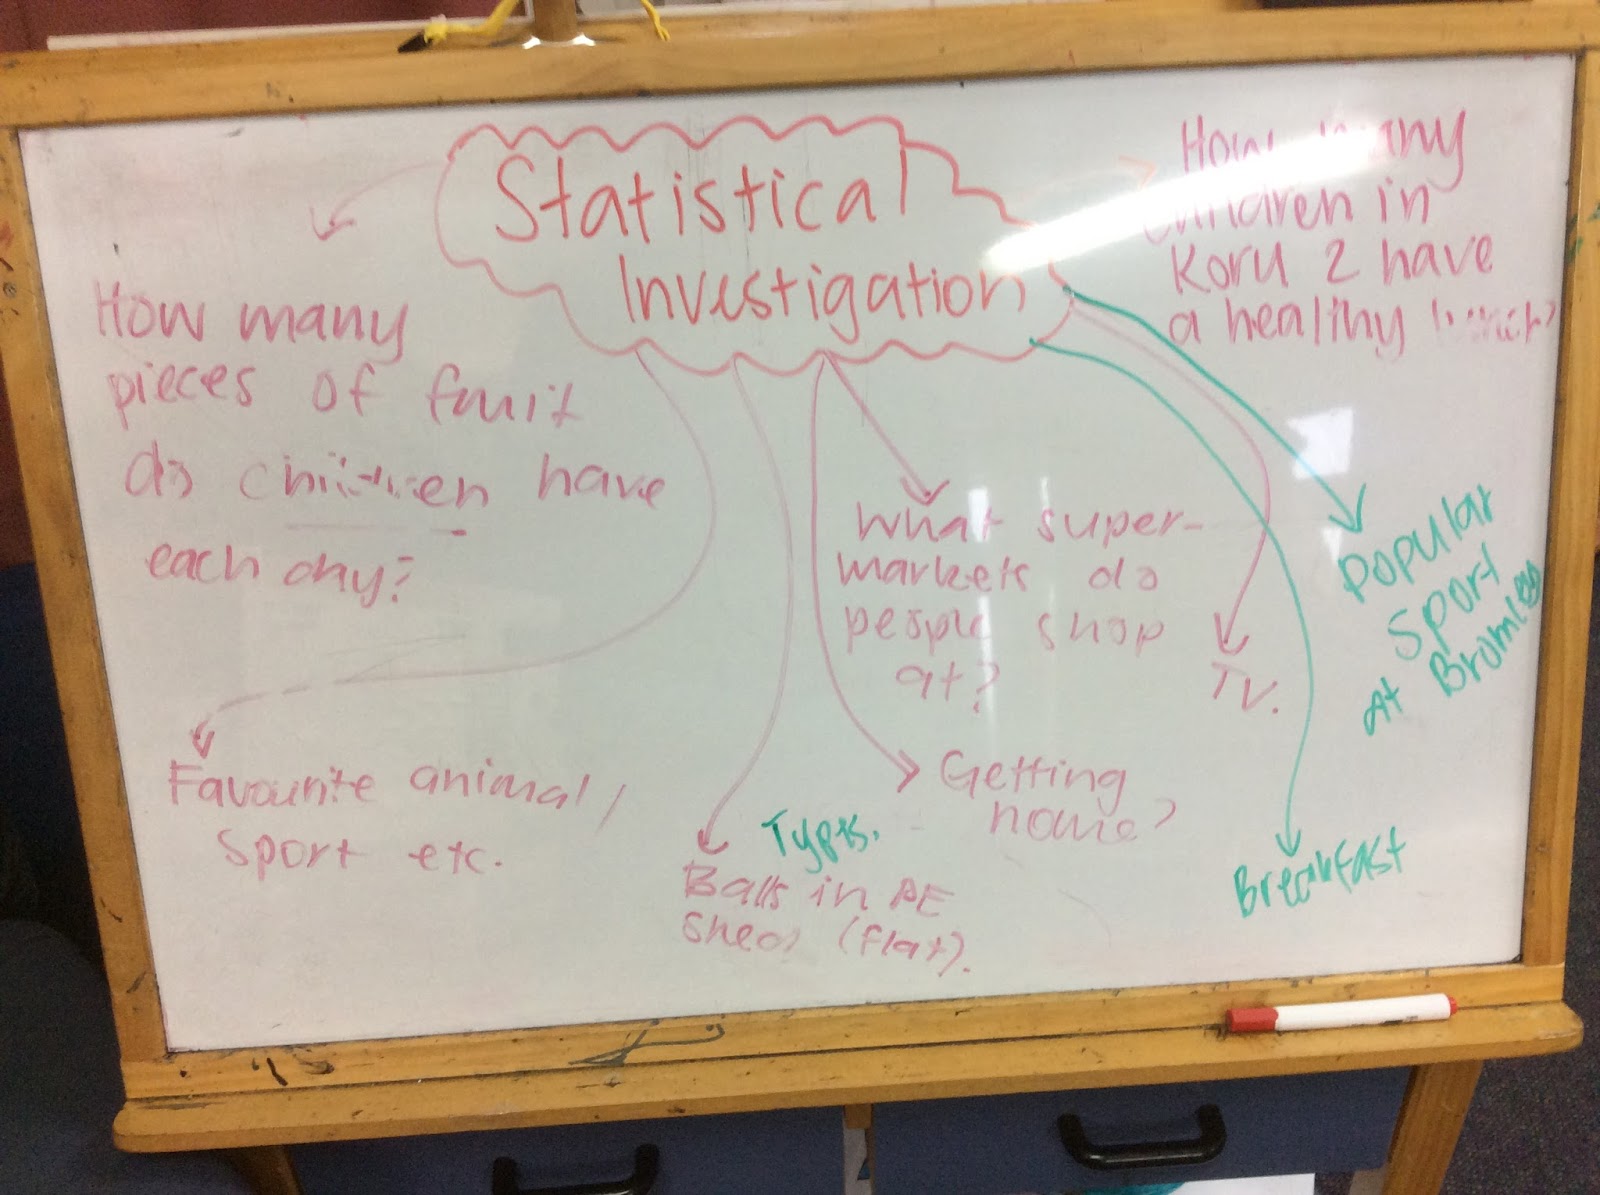 Statistical
Investigation
How many
pieces of fruit
do children have
each day?
How many
children in
Koru 2 have
a healthy lunch?
What super-
markets do
people shop
at?
TV.
Popular
Sport
At
Favourite animal,
sport etc.
Types.
Balls in PE
Shed (flat).
Getting
home?
Breakfast